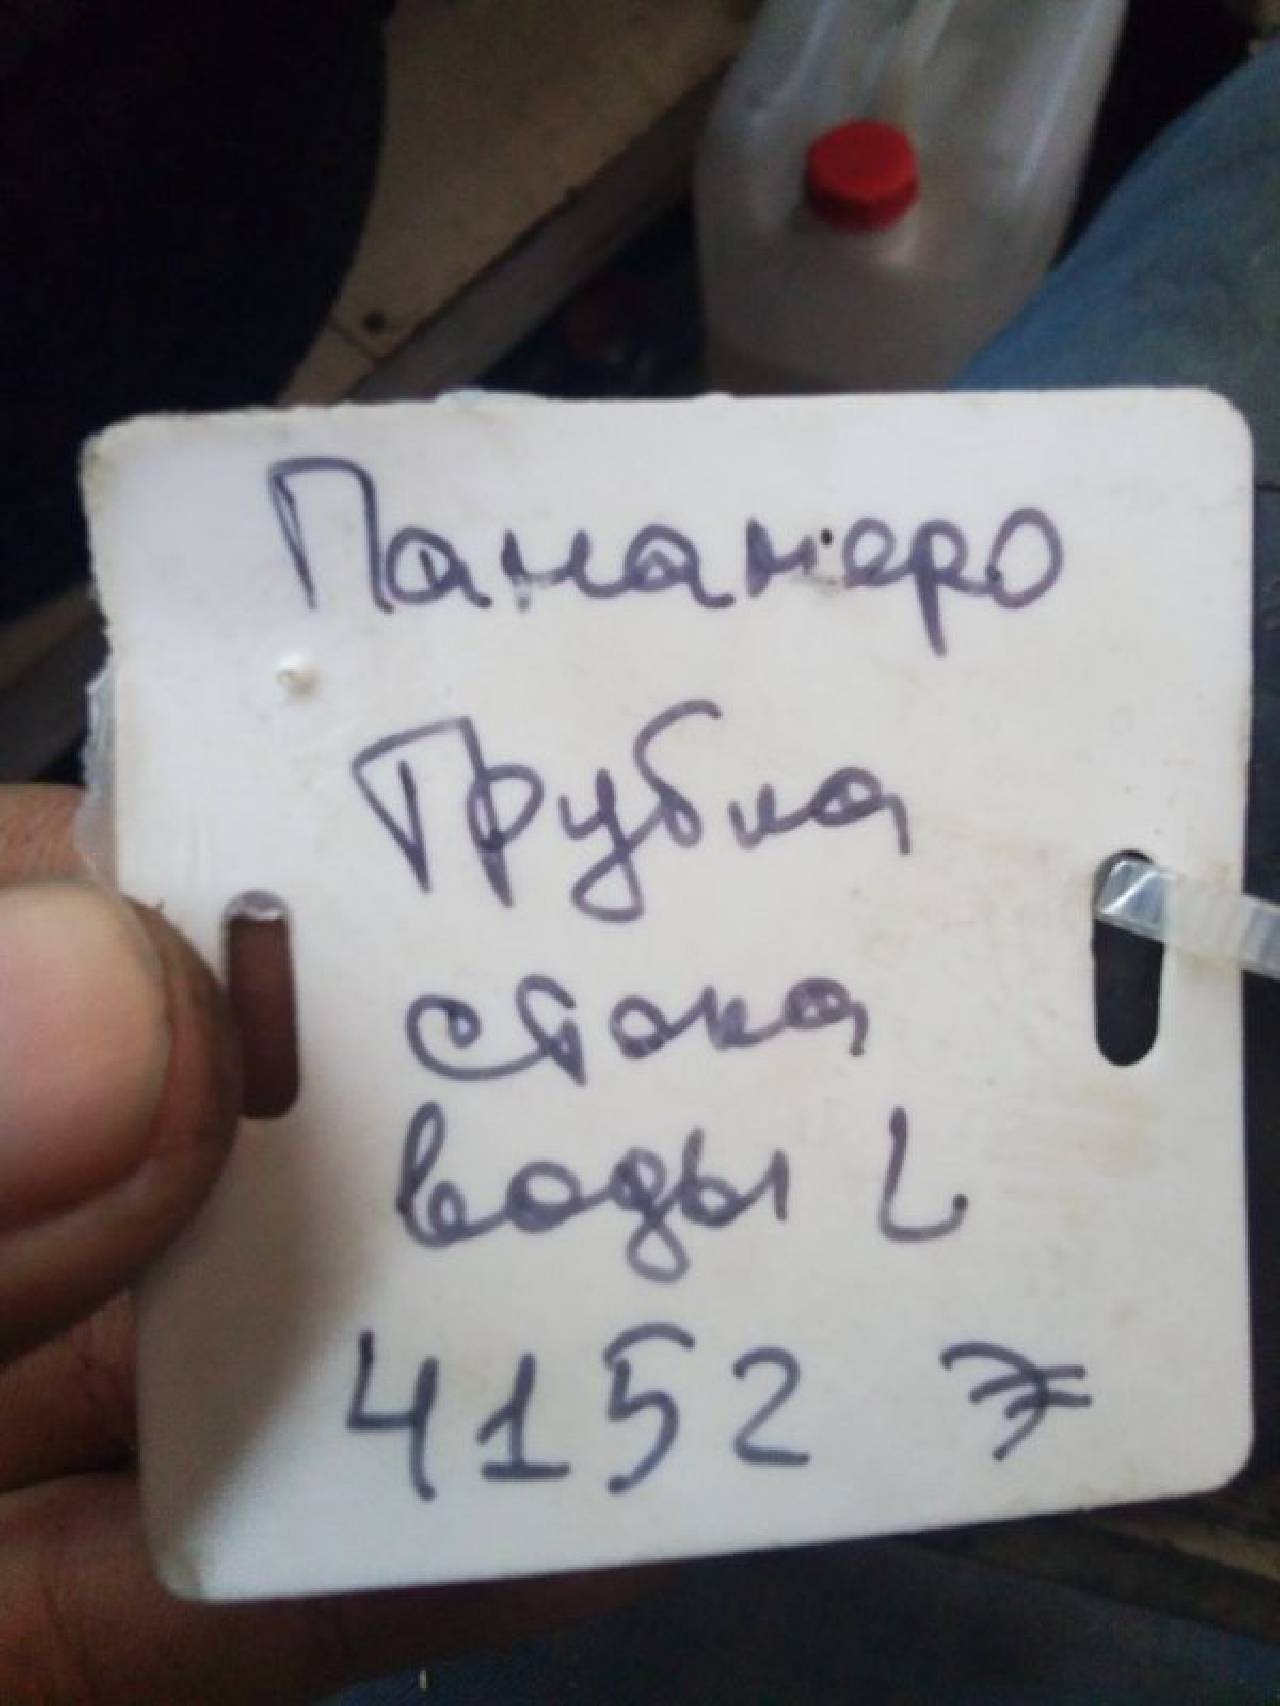 Панамеро
Трубка
стока
воды L
4152